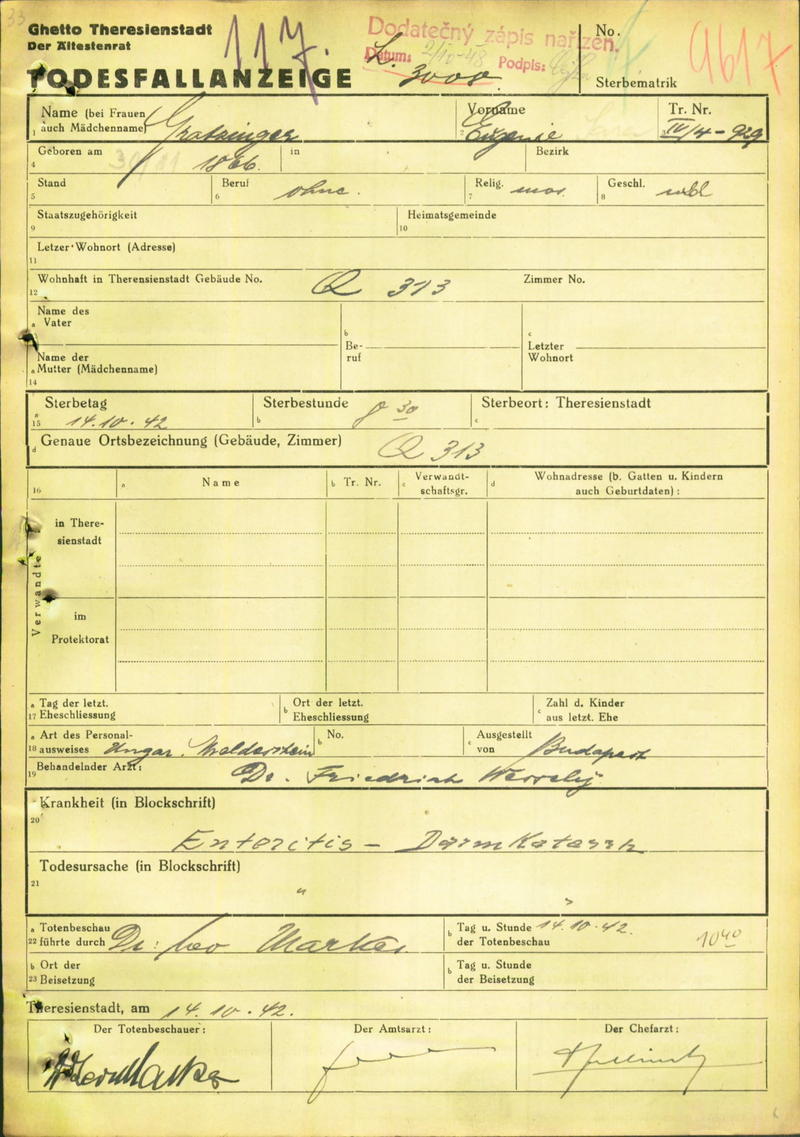 33
Ghetto Theresienstadt
Der Ältestenrat
117.
Dodatečný zápis nařízen.
Datum: 2/10-48 Podpis:
L. 3000
No.
Sterbematrik
9617
TODESFALLANZEIGE
Name (bei Frauen
1 auch Mädchenname) Gratzinger
Vorname
2 Eugenie
Tr. Nr.
3 IV/4-929
Geboren am
4 1866. in Bezirk
Stand
5
Beruf
6 ohne.
Relig.
7 mos.
Geschl.
8 wbl
Staatszugehörigkeit
9
Heimatsgemeinde
10
Letzer Wohnort (Adresse)
11
Wohnhaft in Therensienstadt Gebäude No. Q 313 Zimmer No.
12
Name des
a Vater
b
Be-
ruf
c
Letzter
Wohnort
Name der
a Mutter (Mädchenname)
14
Sterbetag
a
15 14.10.42
Sterbestunde 8 30
b
Sterbeort: Theresienstadt
c
d Genaue Ortsbezeichnung (Gebäude, Zimmer) Q 313
16
a Name
b Tr. Nr.
c Verwandt-
schaftsgr.
d Wohnadresse (b. Gatten u. Kindern
auch Geburtdaten):
Verwandte
in There-
sienstadt
im
Protektorat
a Tag der letzt.
17 Eheschliessung
b Ort der letzt.
Eheschliessung
c Zahl d. Kinder
aus letzt. Ehe
a Art des Personal-
18 ausweises Ungar. Meldeschein
b No.
c Ausgestellt
von Budapest
Behandelnder Arzt: Dr. Friedrich
19
Krankheit (in Blockschrift)
20
Enteritis - Darmkatarrh
Todesursache (in Blockschrift)
21
"
a Totenbeschau
22 führte durch Dr. Leo Markus
b Tag u. Stunde 14.10.42. 10 40
der Totenbeschau
b Ort der
23 Beisetzung
b Tag u. Stunde
der Beisetzung
Theresienstadt, am 14.10.42.
Der Totenbeschauer:
Der Amtsarzt:
Der Chefarzt: